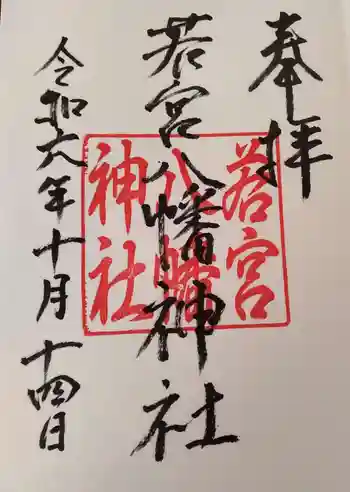 奉拝
若宮八幡神社
令和六年十月十四日
若宮
八幡
神社